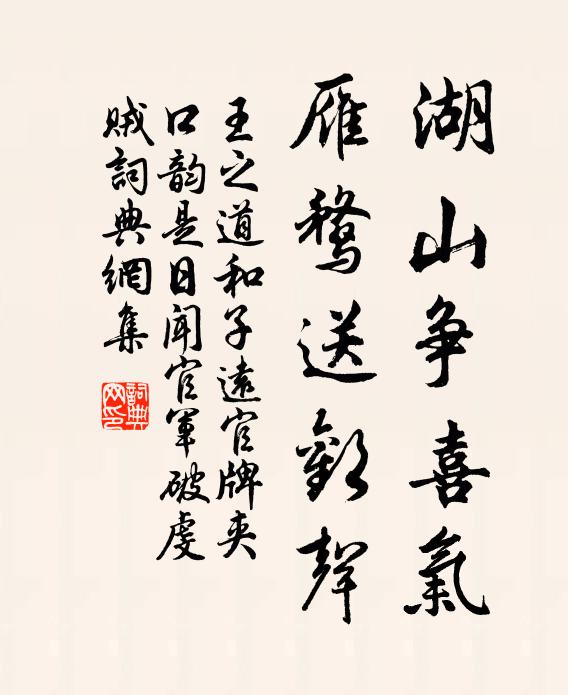 湖山争喜氣
雁鶩送歡聲
王之道和子遠官牌夾
口韵是日聞官軍破虔
賊詞典網集
詞典网印